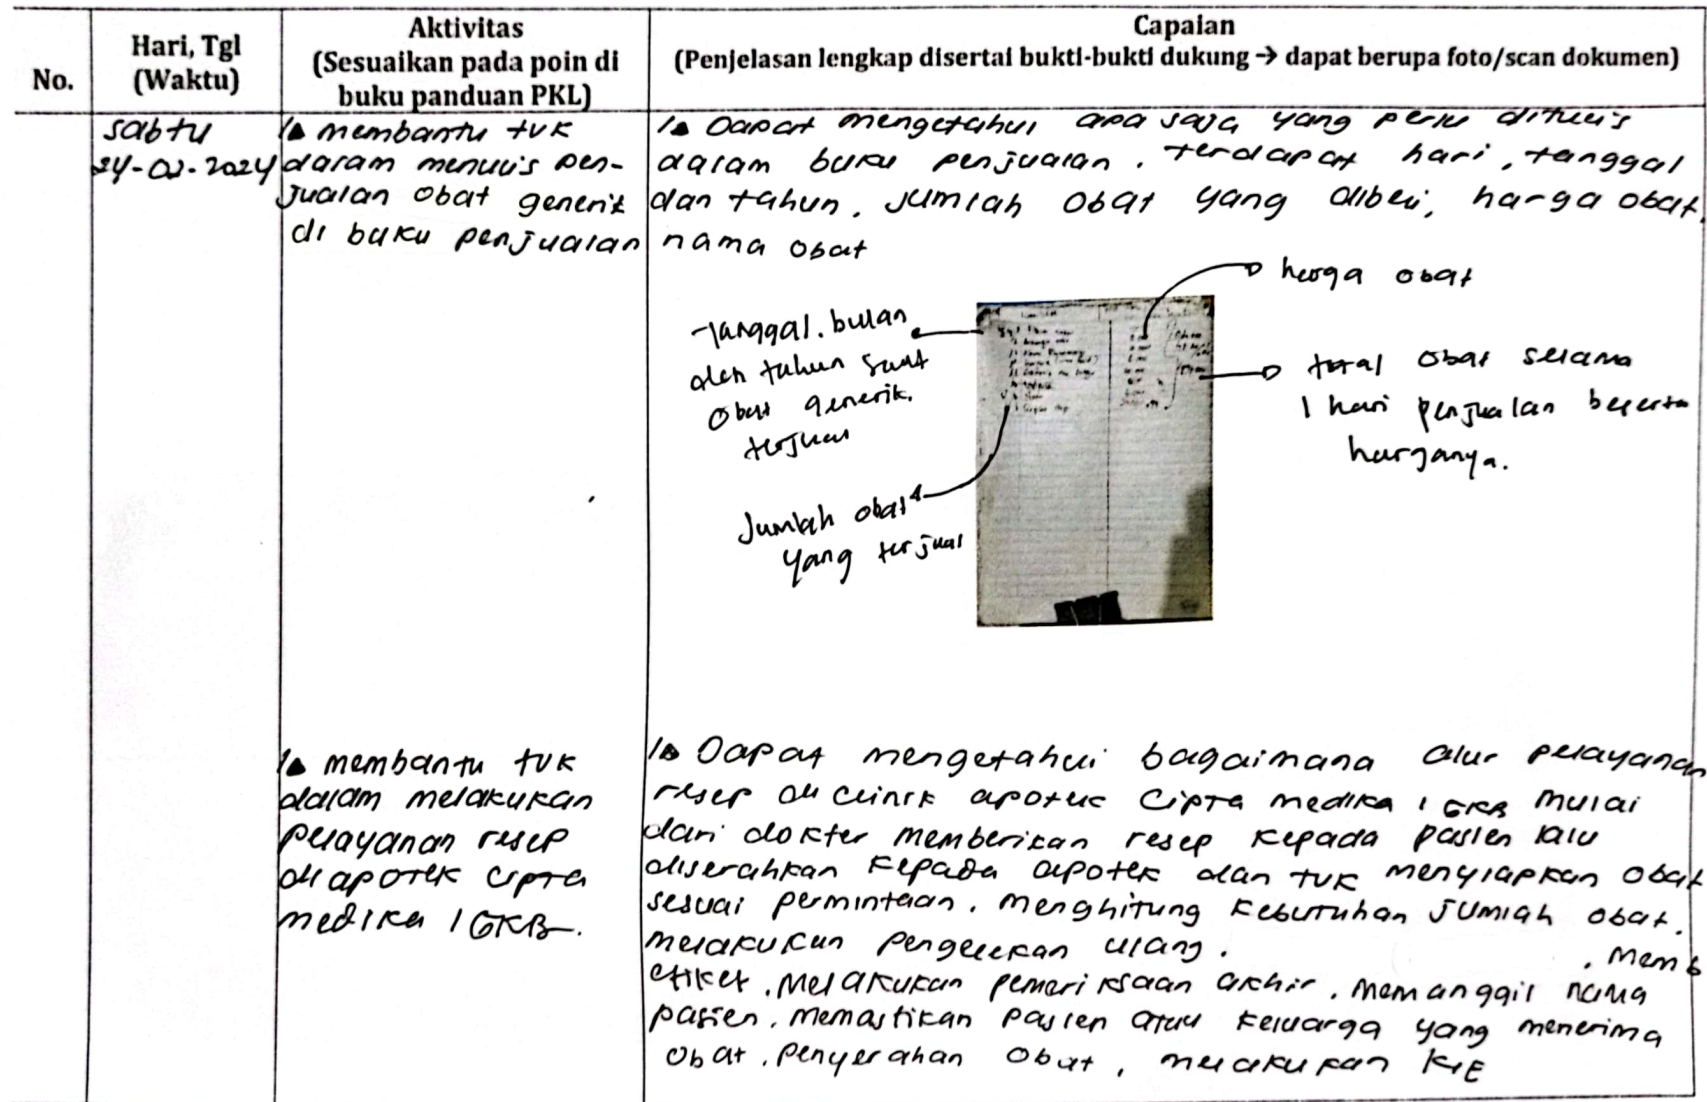 No.
Hari, Tgl
(Waktu)
Aktivitas
(Sesuaikan pada poin di
buku panduan PKL)
Capaian
(Penjelasan lengkap disertai bukti-bukti dukung → dapat berupa foto/scan dokumen)
Sabtu
membantu TVK
dalam menulis pen-
jualan obat generik
di buku penjualan
Dapat mengetahui apa saja yang perlu ditulis
dalam buku penjualan. terdapat hari, tanggal
dan tahun. jumlah obat yang dibeli, harga obat.
nama obat
harga obat
Tanggal. bulan
dan tahun saat
obat generik.
terjual
total obat selama
1 hari penjualan beserta
harganya.
Jumlah obat
yang terjual
membantu TVK
dalam melakukan
pelayanan resep
di apotek cipta
medika 1 GKB.
Dapat mengetahui bagaimana alur pelayanan
resep di clinik apotek Cipta medika 1 GKB Mulai
dari dokter memberikan resep kepada pasien lalu
diserahkan kepada apotek dan TVK menyiapkan obat
sesuai permintaan. menghitung kebutuhan jumlah obat.
melakukan pengecekan ulang. . memb
etiket. Melakukan pemeriksaan akhir. memanggil nama
pasien. memastikan pasien atau keluarga yang menerima
obat. penyerahan obat, melakukan KIE